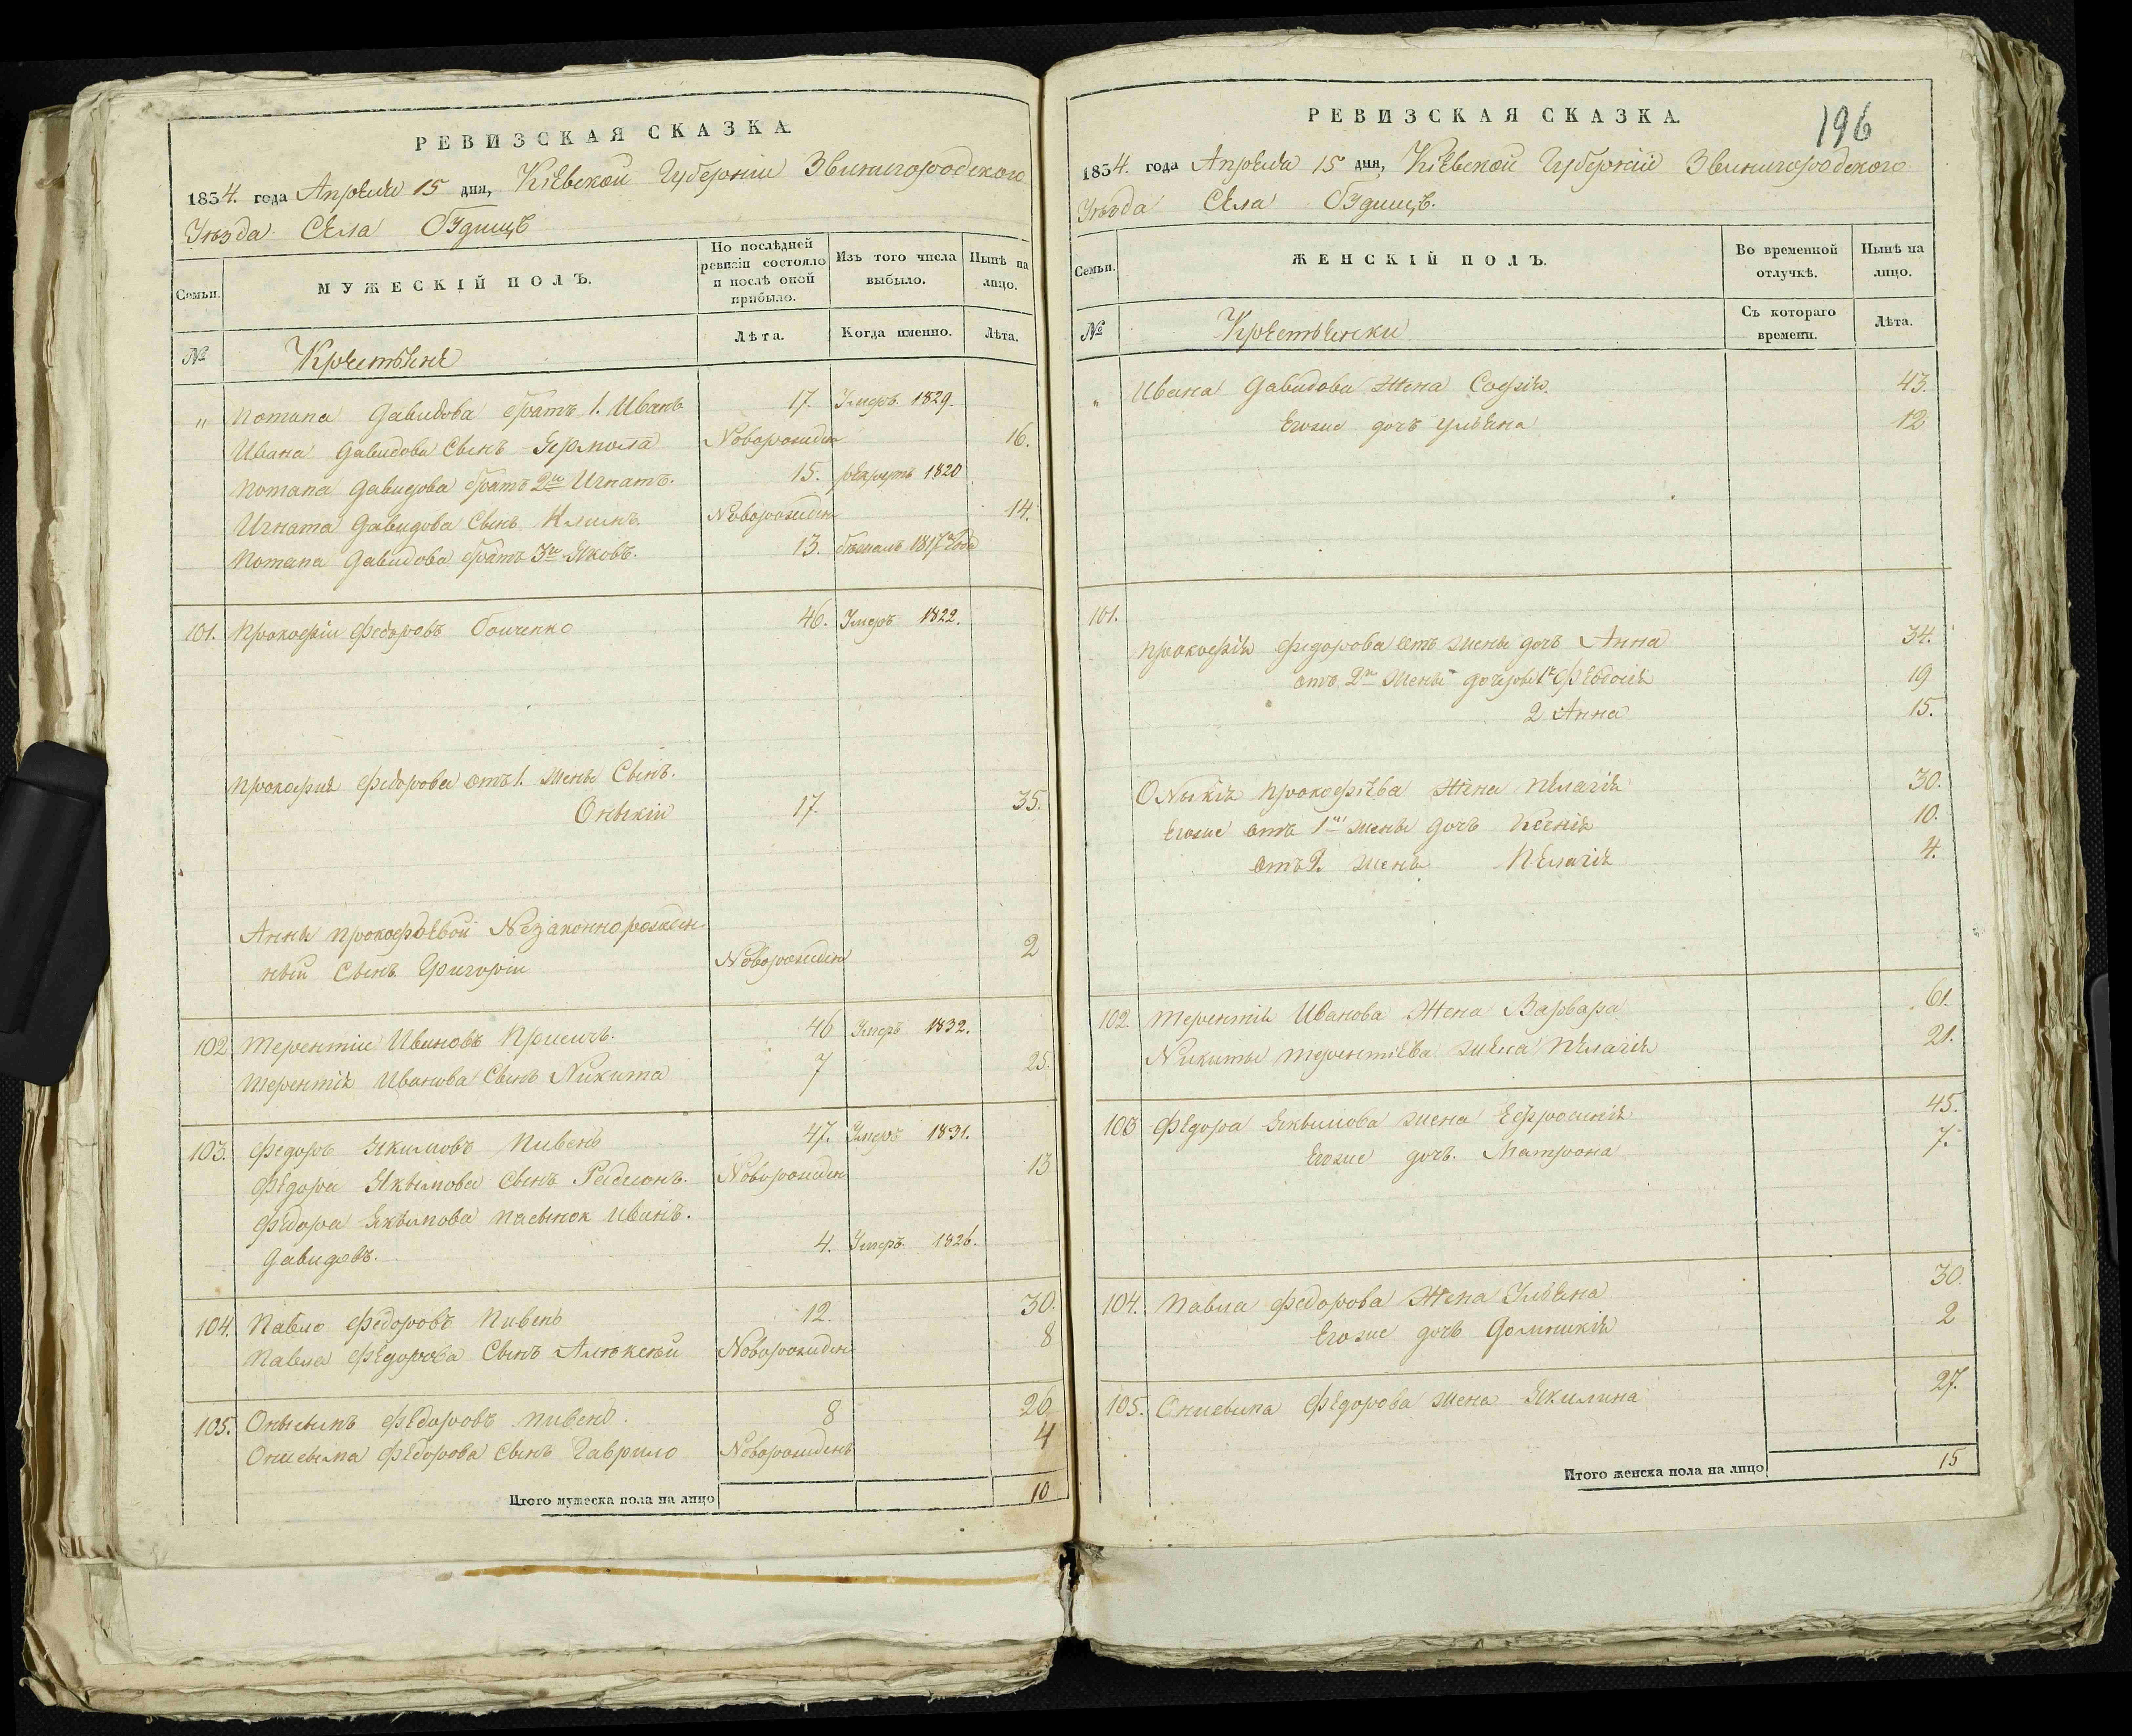 РЕВИЗСКАЯ СКАЗКА
1834. года Апреля 15 дня, Кіевской Губерніи Звинигородского
Уѣзда Села Будищъ
Семьи.
МУЖЕСКІЙ ПОЛЪ.
По послѣдней ревизіи состояло и послѣ оной прибыло.
Изъ того числа выбыло.
Нынѣ на лицо.
№
Крестьяне
Лѣта.
Когда именно.
Лѣта.
" Потапа Давидова братъ 1. Иванъ 17. Умеръ 1829.
Ивана Давидова Сынъ Ярмола Новорожден 16.
Потапа Давидова братъ 2й Игнатъ. 15. рекрутъ 1820
Игната Давидова Сынъ Новорожден 14.
Потапа Давидова братъ 3й Яковъ. 13. бежалъ 1817 Года
101. Прокофіи Федоровъ Бойченко 46. Умеръ 1822.
Прокофия Федорова отъ 1. жены Сынъ.
Оныкій 17. 35.
Анны Прокофьевой Незаконнорожден
ный Сынъ Григорій Новорожден 2
102 Терентіи Ивановъ 46 Умеръ 1832.
Терентія Иванова Сынъ Никита 7 25.
103. Федоръ Якимовъ Пивень 47. Умеръ 1831.
Федора Якымова Сынъ Радионъ. Новорожден 13
Федора Якымова пасынок Иванъ.
Давидовъ. 4. Умеръ 1826.
104. Павло Федоровъ Пивень 12. 30.
Павла Федорова Сынъ Алексѣй Новорожден 8
105. Онысымъ Федоровъ Пивень. 8 26
Онисыма Федорова Сынъ Гаврило Новорожденъ 4
Итого мужеска пола на лицо 10
196
РЕВИЗСКАЯ СКАЗКА
1834. года Апреля 15 дня, Кіевской Губерніи Звинигородского
Уѣзда Села Будищъ.
Семьи.
ЖЕНСКІЙ ПОЛЪ.
Во временной отлучкѣ.
Нынѣ на лицо.
№
Крестьянки
Съ котораго времени.
Лѣта.
" Ивана Давидова Жена Софія. 43.
Егоже дочъ Ульяна 12
101.
Прокофія Федорова отъ жены дочъ Анна 34.
отъ 2й жены дочеры 1я Февдосія 19
2 Анна 15.
Оныкія Прокофіева Жена Пелагія 30.
Егоже отъ 1й жены дочъ Ксенія 10.
отъ 2. жены Пелагія 4.
102. Терентія Иванова Жена Варвара 61.
Никиты Терентіева жена Пелагія 21.
103 Федора Якымова жена Ефросинія 45.
Егоже дочъ. Матрона 7.
104. Павла Федорова Жена Ульяна 30
Егоже дочъ Домникія 2
105. Онисыма Федорова жена Якилина 27.
Итого женска пола на лицо 15